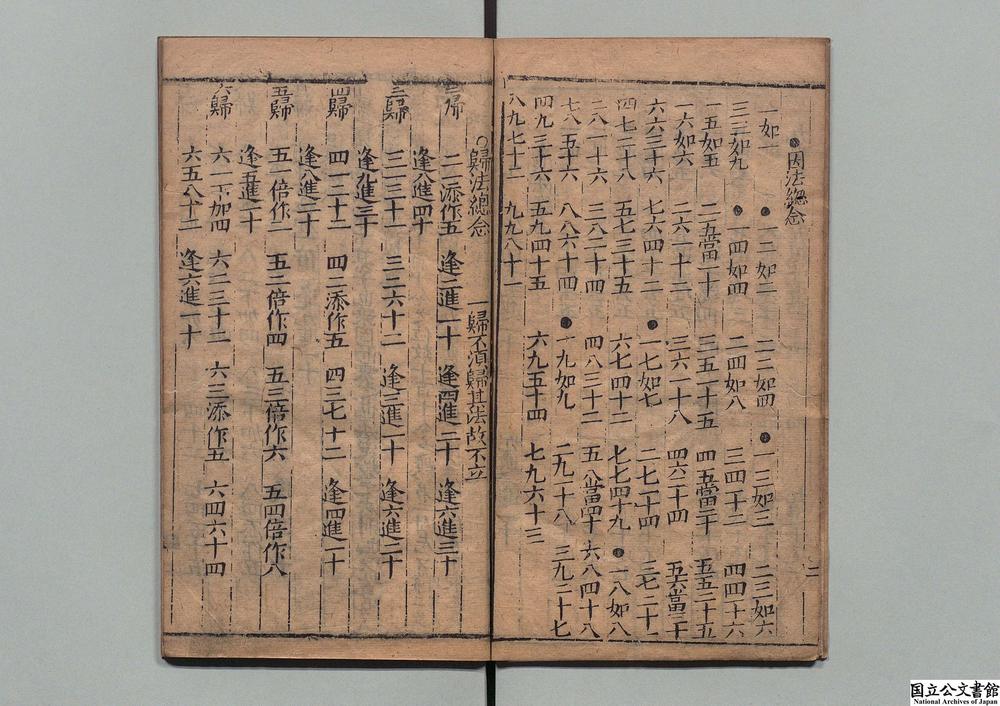 ●因法總念
一如一 ●一二如二 二二如四 ●一三如三 二三如六
三三如九 ●一四如四 二四如八 三四十二 四四十六
一五如五 二五當一十 三五一十五 四五當二十 五五二十五
一六如六 二六一十二 三六一十八 四六二十四 五六當三十
六六三十六 七六四十二 ●一七如七 二七一十四 三七二十一
四七二十八 五七三十五 六七四十二 七七四十九 ●一八如八
二八一十六 三八二十四 四八三十二 五八當四十 六八四十八
七八五十六 八八六十四 ●一九如九 二九一十八 三九二十七
四九三十六 五九四十五 六九五十四 七九六十三
八九七十二 九九八十一
二
○歸法總念 一歸不湏歸其法故不立
二歸 二一添作五 逢二進一十 逢四進二十 逢六進三十
逢八進四十
三歸 三一三十一 三二六十二 逢三進一十 逢六進二十
逢九進三十
四歸 四一二十二 四二添作五 四三七十二 逢四進一十
逢八進二十
五歸 五一倍作二 五二倍作四 五三倍作六 五四倍作八
逢五進一十
六歸 六一下加四 六二三十二 六三添作五 六四六十四
六五八十二 逢六進一十
国立公文書館
National Archives of Japan